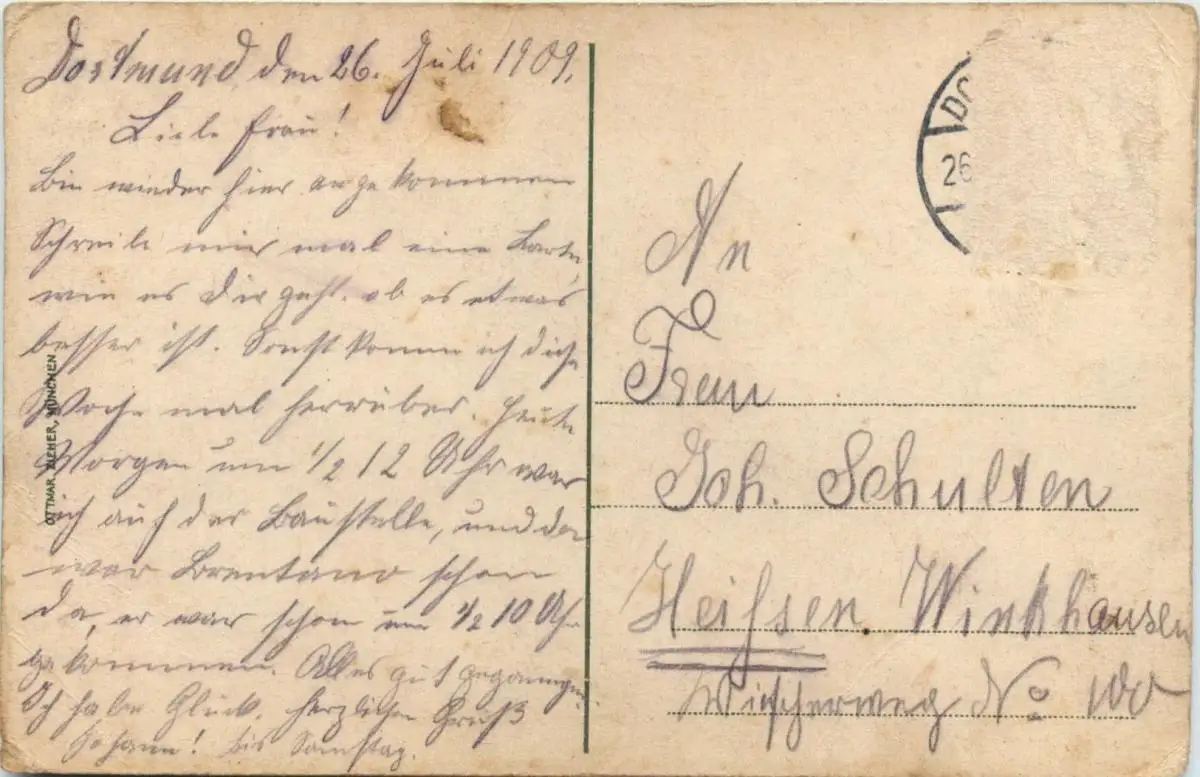 Dortmund, den 26. Juli 1909.
Liebe Frau!
Bin wieder hier angekommen
Schreibe mir mal eine Karte,
wie es Dir geht. ob es etwas
besser ist. Sonst komme ich diese
Woche mal herrüber. Heute
Morgen um 1/2 12 Uhr war
ich auf der Baustelle, und da
war Brentano schon
da, er war schon um 1/2 10 Uhr
gekommen. Alles gut gegangen.
Ich habe Glück. herzlichen Gruß
Johann! bis Samstag.
OTTMAR ZIEHER, MÜNCHEN
DO
26
An
Frau
Joh. Schulten
Heißen. Winkhausen
No